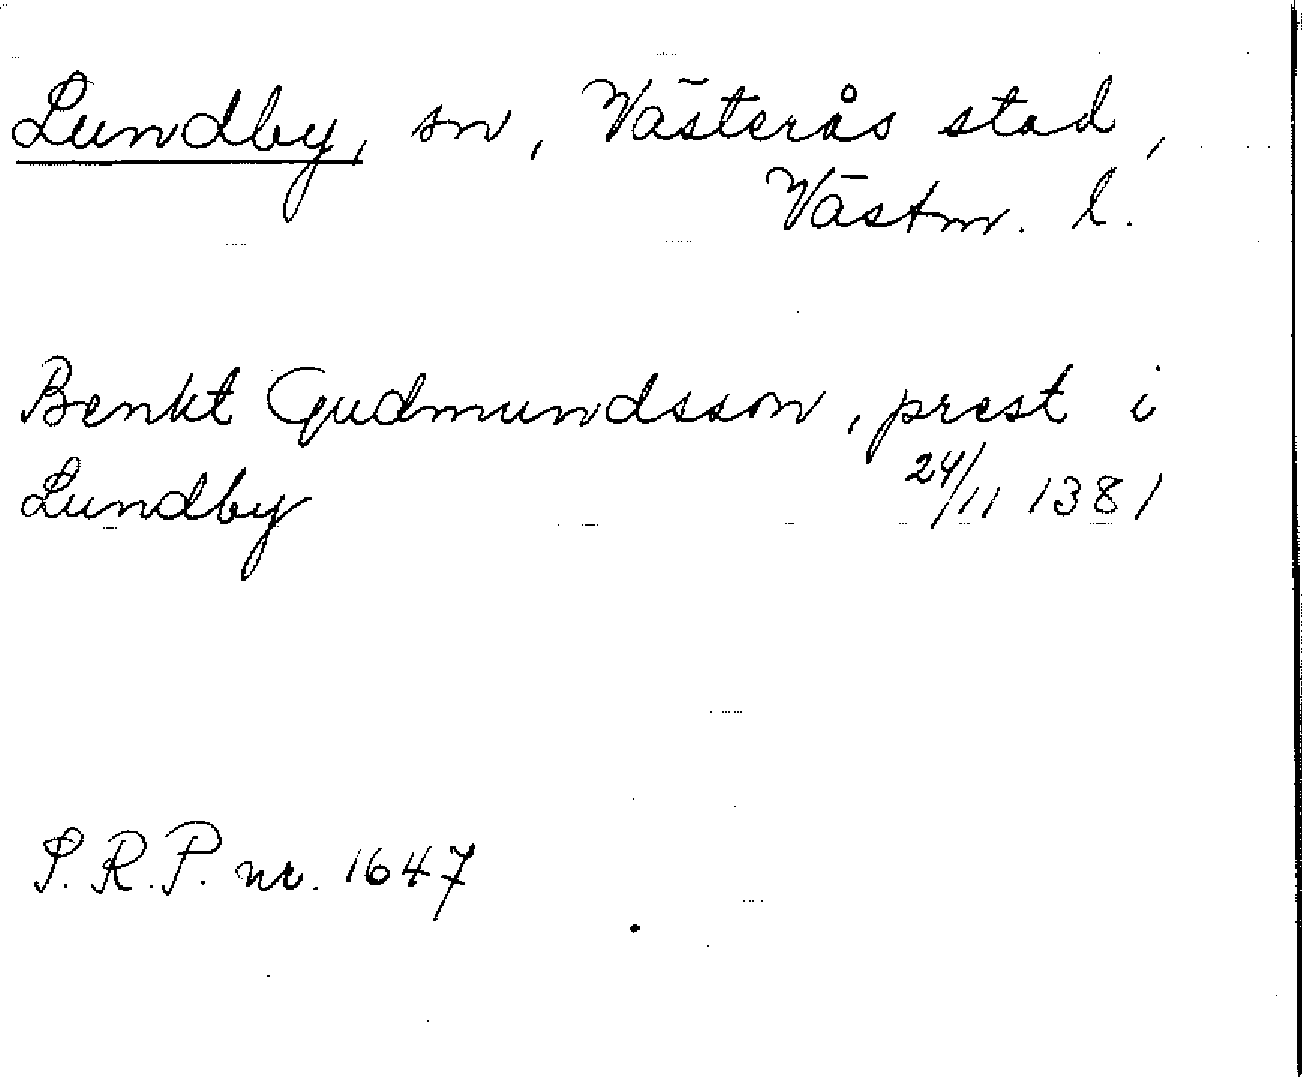 Lundby, sn, Västerås stad,
Västm. l.
Benkt Gudmundsson, prest i
Lundby 24/11 1381
S.R.P. nr. 1647